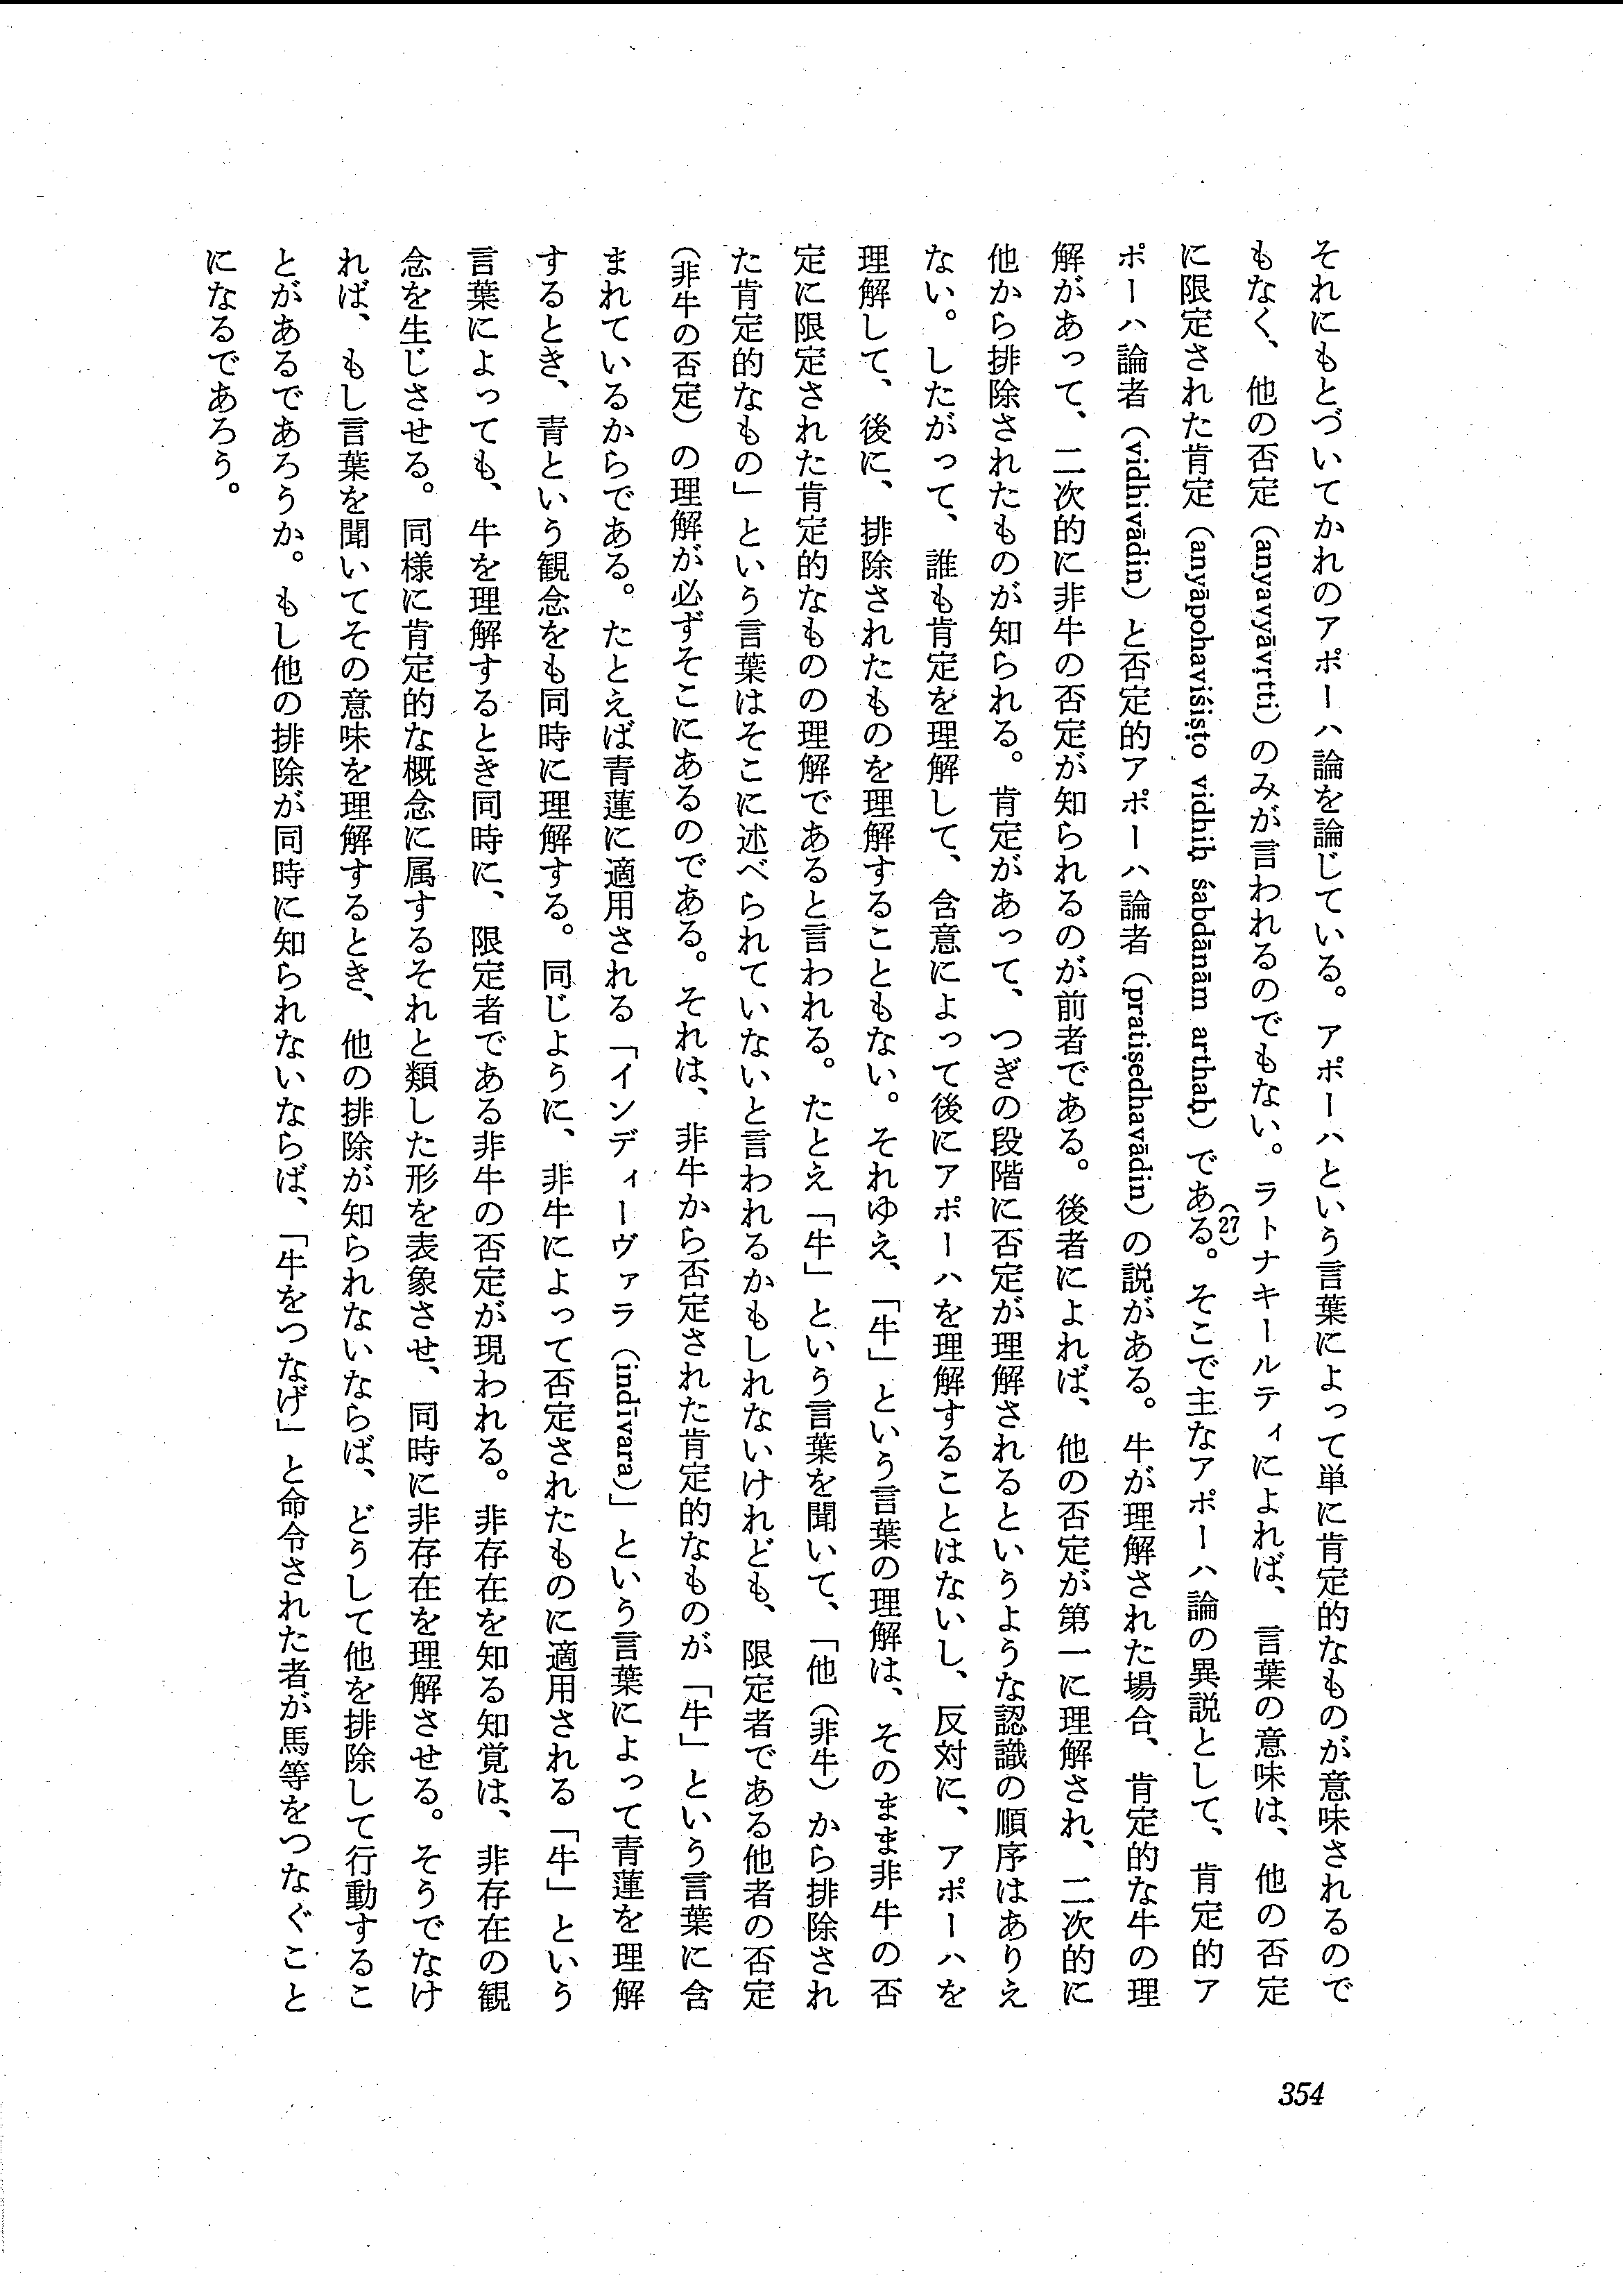 それにもとづいてかれのアポーハ論を論じている。アポーハという言葉によって単に肯定的なものが意味されるので
もなく、他の否定(anyavyāvṛtti)のみが言われるのでもない。ラトナキールティによれば、言葉の意味は、他の否定
に限定された肯定(anyāpohaviśiṣṭo vidhiḥ śabdānām arthaḥ)である。(27)そこで主なアポーハ論の異説として、肯定的ア
ポーハ論者(vidhivādin)と否定的アポーハ論者(pratiṣedhavādin)の説がある。牛が理解された場合、肯定的な牛の理
解があって、二次的に非牛の否定が知られるのが前者である。後者によれば、他の否定が第一に理解され、二次的に
他から排除されたものが知られる。肯定があって、つぎの段階に否定が理解されるというような認識の順序はありえ
ない。したがって、誰も肯定を理解して、含意によって後にアポーハを理解することはないし、反対に、アポーハを
理解して、後に、排除されたものを理解することもない。それゆえ、「牛」という言葉の理解は、そのまま非牛の否
定に限定された肯定的なものの理解であると言われる。たとえ「牛」という言葉を聞いて、「他(非牛)から排除され
た肯定的なもの」という言葉はそこに述べられていないと言われるかもしれないけれども、限定者である他者の否定
(非牛の否定)の理解が必ずそこにあるのである。それは、非牛から否定された肯定的なものが「牛」という言葉に含
まれているからである。たとえば青蓮に適用される「インディーヴァラ(indīvara)」という言葉によって青蓮を理解
するとき、青という観念をも同時に理解する。同じように、非牛によって否定されたものに適用される「牛」という
言葉によっても、牛を理解するとき同時に、限定者である非牛の否定が現われる。非存在を知る知覚は、非存在の観
念を生じさせる。同様に肯定的な概念に属するそれと類した形を表象させ、同時に非存在を理解させる。そうでなけ
れば、もし言葉を聞いてその意味を理解するとき、他の排除が知られないならば、どうして他を排除して行動するこ
とがあるであろうか。もし他の排除が同時に知られないならば、「牛をつなげ」と命令された者が馬等をつなぐこと
になるであろう。
354